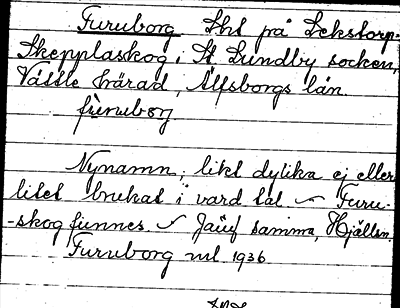 Furuborg. Lht på Lekstorp-
Skepplaskog, St. Lundby socken,
Vättle härad, Älfsborgs län.
fùruborg
Nynamn; likt dylika ej eller
litet brukat i vard tal ~ Furu-
-skog finnes. ~ Jämf samma, Hjällsn.
Furuborg ml 1936